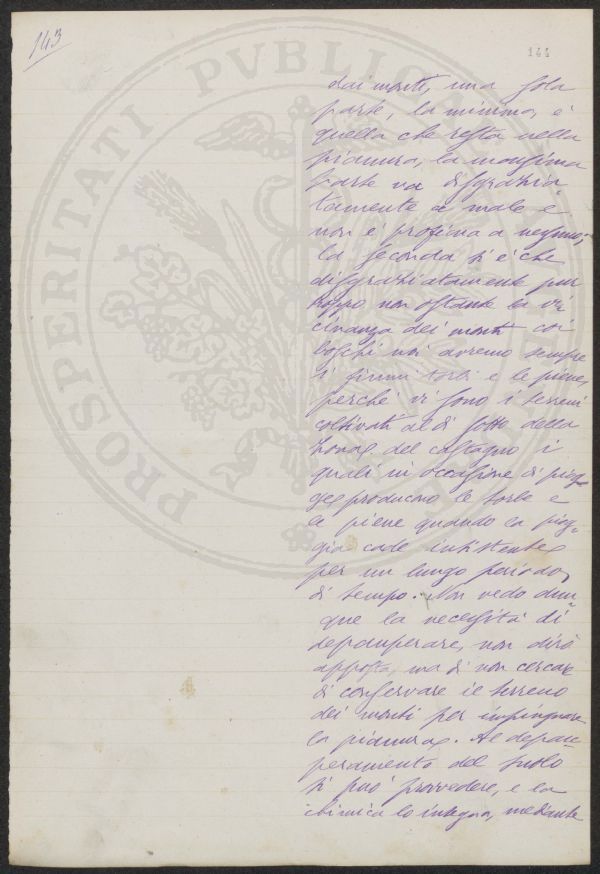 143
144
PROSPERITATI PVBLICAE
dai monti, una sola
parte, la minima, è
quella che resta nella
pianura, la massima
parte va disgrazia-
tamente a male e
non è proficua a nessuno;
la seconda si è che
disgraziatamente pur
troppo non ostante la vi
cinanza dei monti coi
boschi noi avremo sempre
i fiumi torbi e le piene,
perchè vi sono i terreni
coltivati al di sotto della
zona del castagno i
quali in occasione di piog
ge producono le torbe e
le piene quando la piog-
gia cade insistente
per un lungo periodo
di tempo. Non vedo dun-
que la necessità di
depauperare, non dirò
apposta, ma di non cercare
di conservare il terreno
dei monti per impinguare
la pianura. Al depau-
peramento del suolo
si può provvedere, e la
chimica lo insegna, mediante